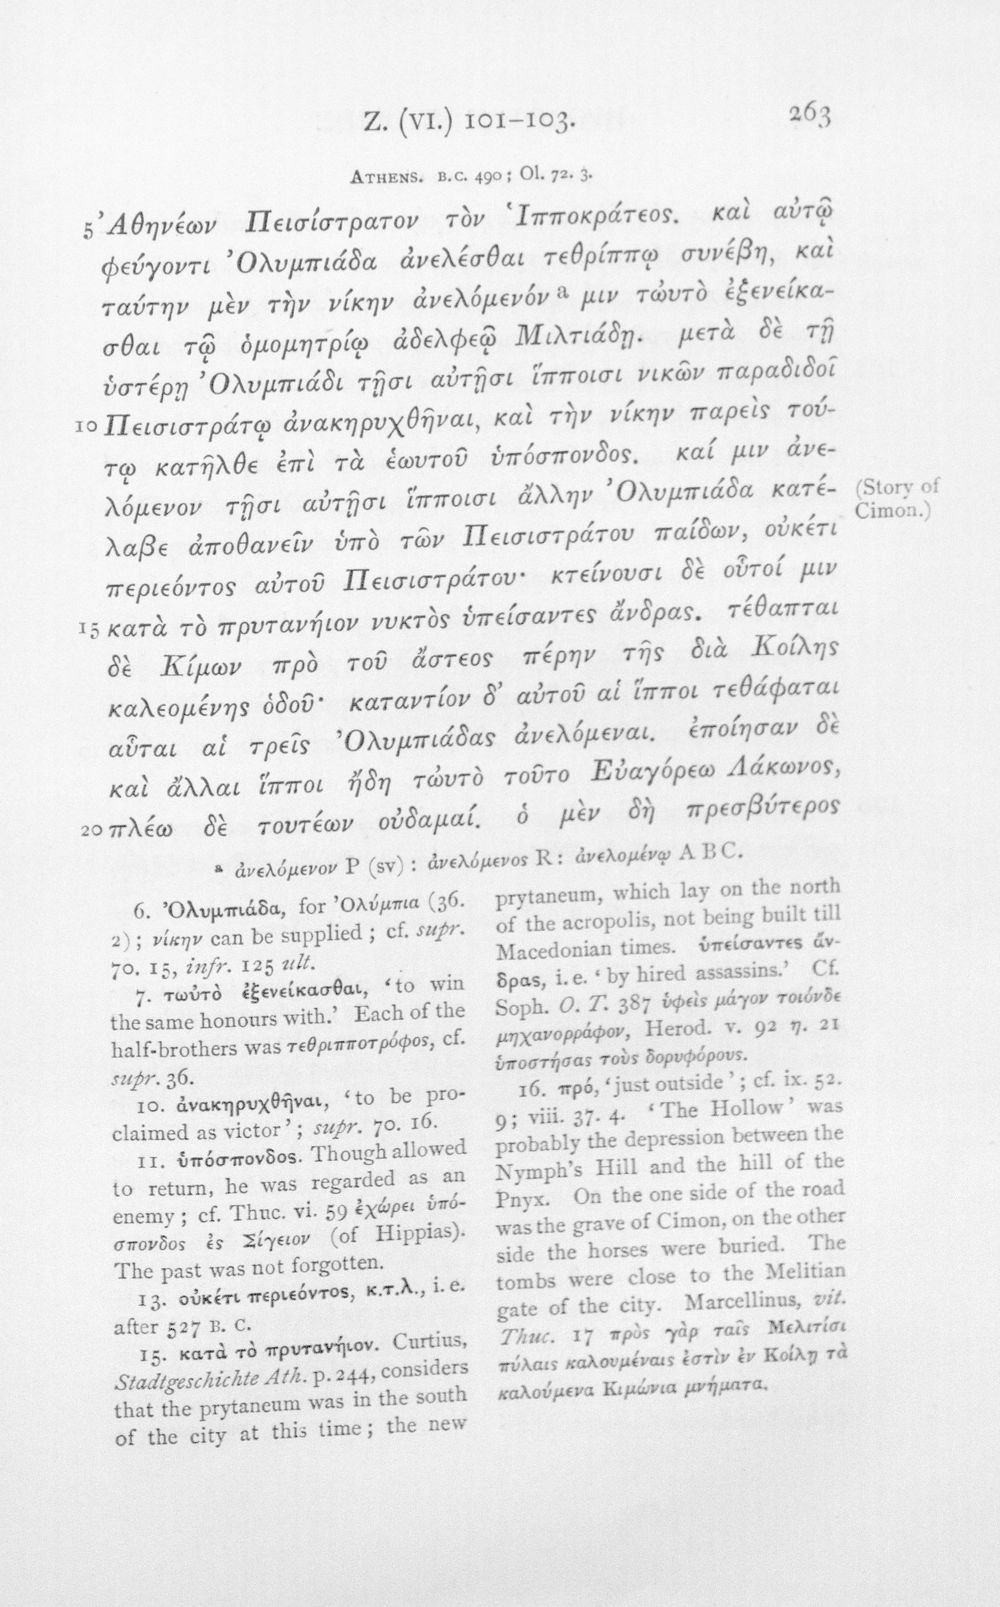 Z. (VI.) 101–103.
263
ATHENS. B.C. 490; Ol. 72. 3.
5 Ἀθηνέων Πεισίστρατον τὸν Ἱπποκράτεος. καὶ αὐτῷ
φεύγοντι Ὀλυμπιάδα ἀνελέσθαι τεθρίππῳ συνέβη, καὶ
ταύτην μὲν τὴν νίκην ἀνελόμενόν a μιν τὠυτὸ ἐξενείκα-
σθαι τῷ ὁμομητρίῳ ἀδελφεῷ Μιλτιάδῃ. μετὰ δὲ τῇ
ὑστέρῃ Ὀλυμπιάδι τῇσι αὐτῇσι ἵπποισι νικῶν παραδιδοῖ
10 Πεισιστράτῳ ἀνακηρυχθῆναι, καὶ τὴν νίκην παρεὶς τού-
τῳ κατῆλθε ἐπὶ τὰ ἑωυτοῦ ὑπόσπονδος. καί μιν ἀνε-
λόμενον τῇσι αὐτῇσι ἵπποισι ἄλλην Ὀλυμπιάδα κατέ-
(Story of
Cimon.)
λαβε ἀποθανεῖν ὑπὸ τῶν Πεισιστράτου παίδων, οὐκέτι
περιεόντος αὐτοῦ Πεισιστράτου· κτείνουσι δὲ οὗτοί μιν
15 κατὰ τὸ πρυτανήιον νυκτὸς ὑπείσαντες ἄνδρας. τέθαπται
δὲ Κίμων πρὸ τοῦ ἄστεος πέρην τῆς διὰ Κοίλης
καλεομένης ὁδοῦ· καταντίον δ' αὐτοῦ αἱ ἵπποι τεθάφαται
αὗται αἱ τρεῖς Ὀλυμπιάδας ἀνελόμεναι. ἐποίησαν δὲ
καὶ ἄλλαι ἵπποι ἤδη τὠυτὸ τοῦτο Εὐαγόρεω Λάκωνος,
20 πλέω δὲ τουτέων οὐδαμαί. ὁ μὲν δὴ πρεσβύτερος
a ἀνελόμενον P (sv) : ἀνελόμενος R : ἀνελομένῳ A B C.
6. Ὀλυμπιάδα, for Ὀλύμπια (36.
2); νίκην can be supplied; cf. supr.
70. 15, infr. 125 ult.
7. τωὐτὸ ἐξενείκασθαι, ‘to win
the same honours with.’ Each of the
half-brothers was τεθριπποτρόφος, cf.
supr. 36.
10. ἀνακηρυχθῆναι, ‘to be pro-
claimed as victor’; supr. 70. 16.
11. ὑπόσπονδος. Though allowed
to return, he was regarded as an
enemy; cf. Thuc. vi. 59 ἐχώρει ὑπό-
σπονδος ἐς Σίγειον (of Hippias).
The past was not forgotten.
13. οὐκέτι περιεόντος, κ.τ.λ., i.e.
after 527 B. C.
15. κατὰ τὸ πρυτανήιον. Curtius,
Stadtgeschichte Ath. p. 244, considers
that the prytaneum was in the south
of the city at this time; the new
prytaneum, which lay on the north
of the acropolis, not being built till
Macedonian times. ὑπείσαντες ἄν-
δρας, i.e. ‘by hired assassins.’ Cf.
Soph. O. T. 387 ὑφεὶς μάγον τοιόνδε
μηχανορράφον, Herod. v. 92 η. 21
ὑποστήσας τοὺς δορυφόρους.
16. πρό, ‘just outside’; cf. ix. 52.
9; viii. 37. 4. ‘The Hollow’ was
probably the depression between the
Nymph's Hill and the hill of the
Pnyx. On the one side of the road
was the grave of Cimon, on the other
side the horses were buried. The
tombs were close to the Melitian
gate of the city. Marcellinus, vit.
Thuc. 17 πρὸς γὰρ ταῖς Μελιτίσι
πύλαις καλουμέναις ἐστὶν ἐν Κοίλῃ τὰ
καλούμενα Κιμώνια μνήματα.